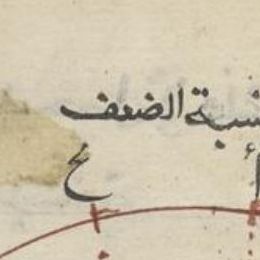 نسبة الضعف
أ ح